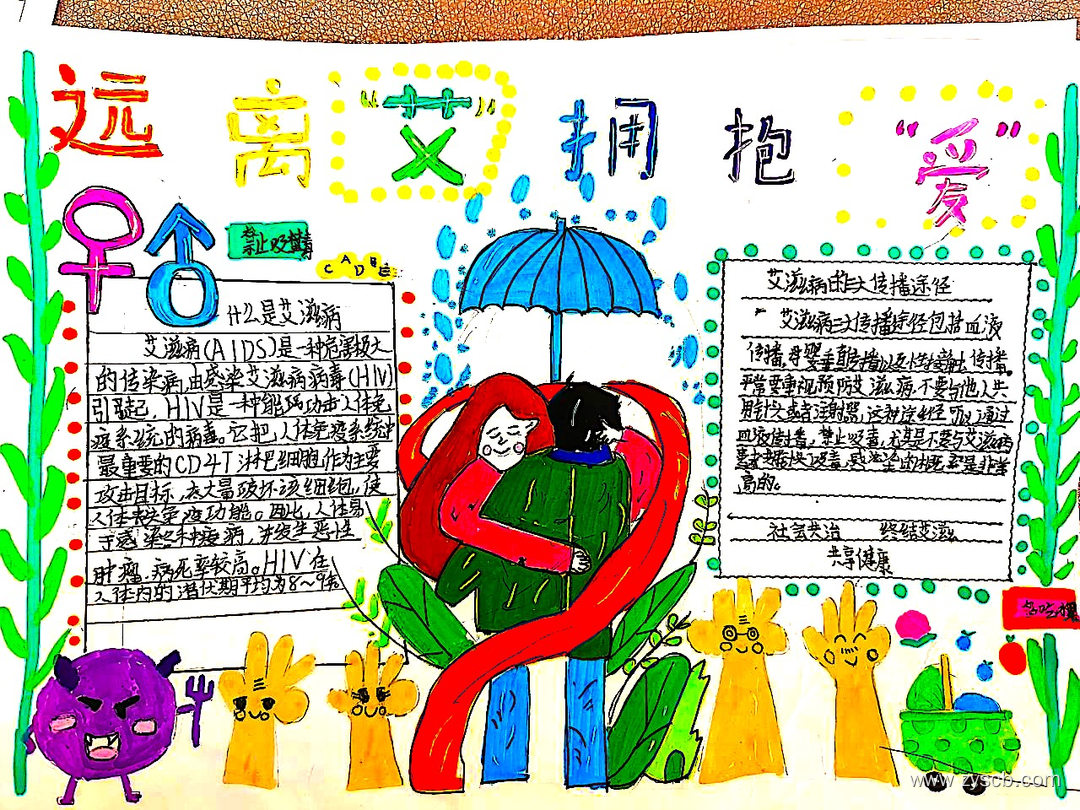 远离"艾"拥抱"爱"
禁止吸毒
什么是艾滋病
艾滋病(AIDS)是一种危害极大
的传染病,由感染艾滋病病毒(HIV)
引起,HIV是一种能攻击人体免
疫系统的病毒。它把人体免疫系统中
最重要的CD4T淋巴细胞作为主要
攻击目标,大量破坏该细胞,使
人体丧失免疫功能。因此,人体易
于感染各种疾病,并发生恶性
肿瘤,病死率较高。HIV在
人体内的潜伏期平均为8~9年
艾滋病的三大传播途径
艾滋病三大传播途径包括血液
传播,母婴垂直传播以及性接触传播。
平常要重视预防艾滋病,不要与他人共
用针头或者注射器,这种途径可以通过
血液传播,禁止吸毒,尤其是不要与艾滋病
患者共用吸毒,感染的概率是非常
高的。
社会共治 终结艾滋
共享健康
多吃水果
www.zyscb.com